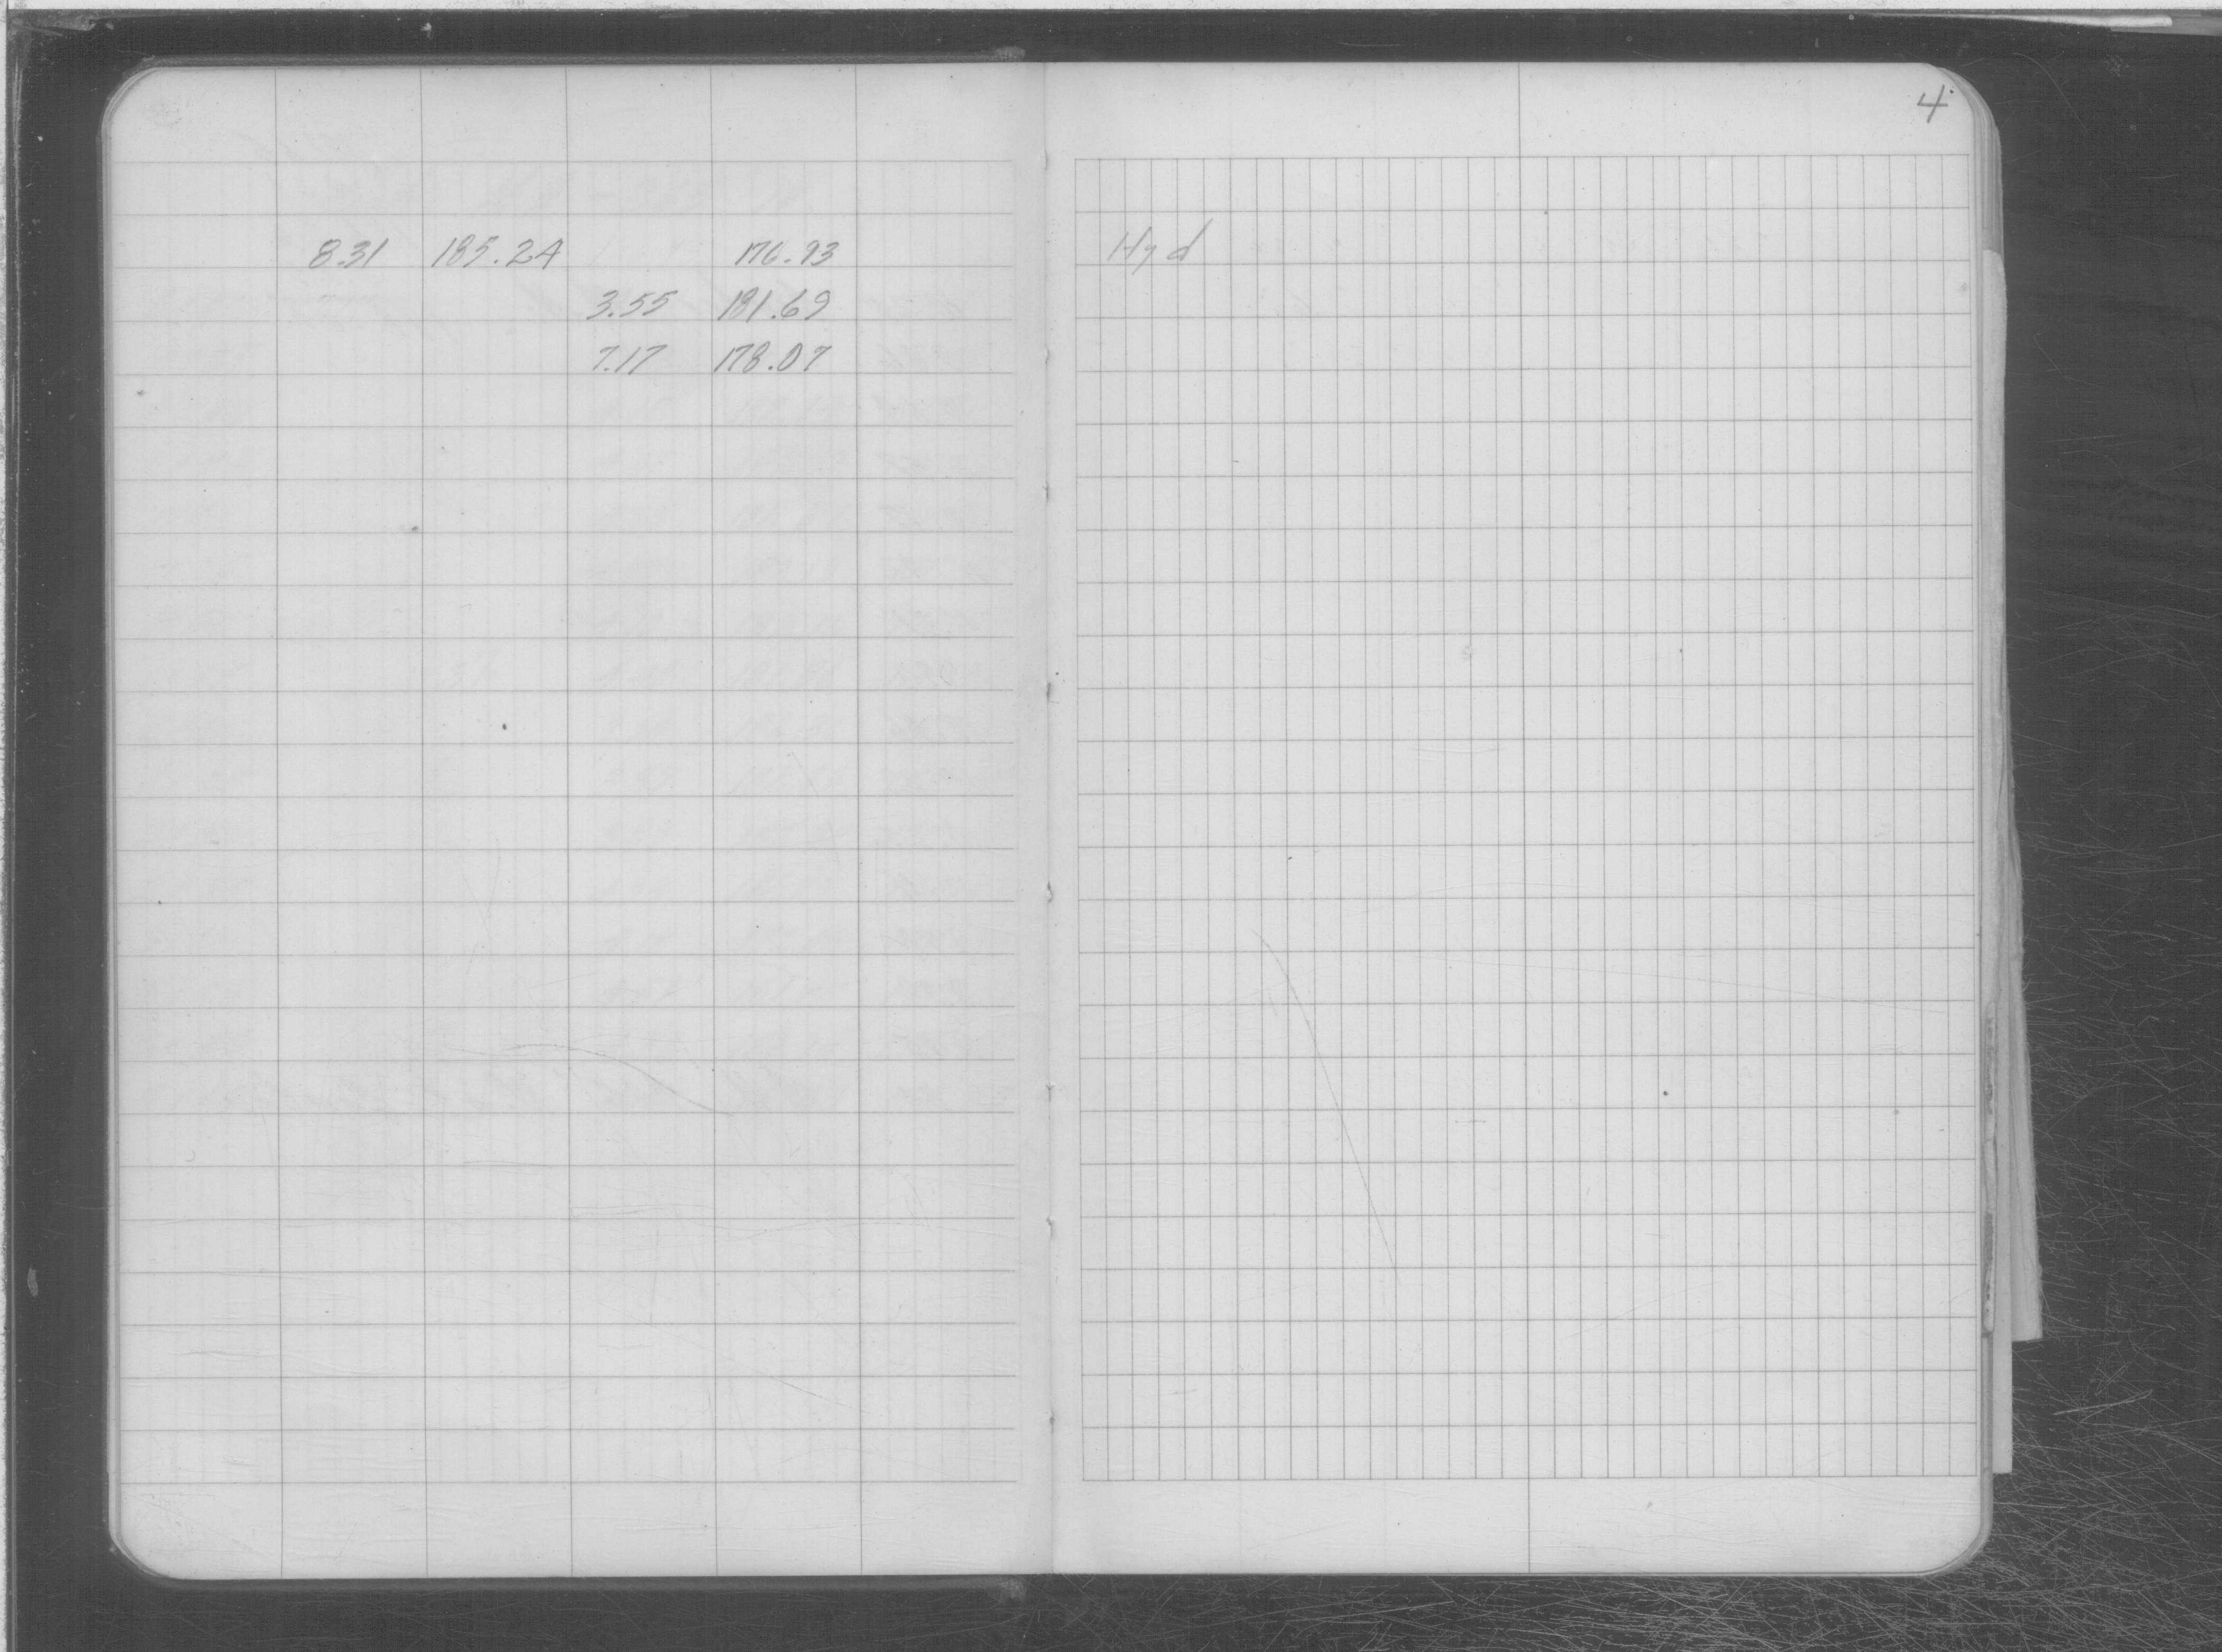 4
8.31 185.24 176.93 Hyd
3.55 181.69
7.17 178.07